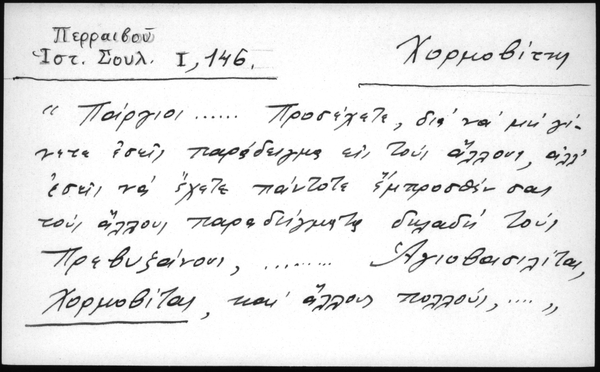 Περραιβοῦ
Ἱστ. Σουλ. I, 146.
Χορμοβίτης
“ Πάργιοι ...... Προσέχετε, διὰ νὰ μὴ γί-
νετε ἐσεῖς παράδειγμα εἰς τοὺς ἄλλους, ἀλλ'
ἐσεῖς νὰ ἔχετε πάντοτε ἔμπροσθέν σας
τοὺς ἄλλους παραδείγματα δηλαδὴ τοὺς
Πρεβυζάνους, ......... Ἁγιοβασιλίτας,
Χορμοβίτας, καὶ ἄλλους πολλούς, .... „